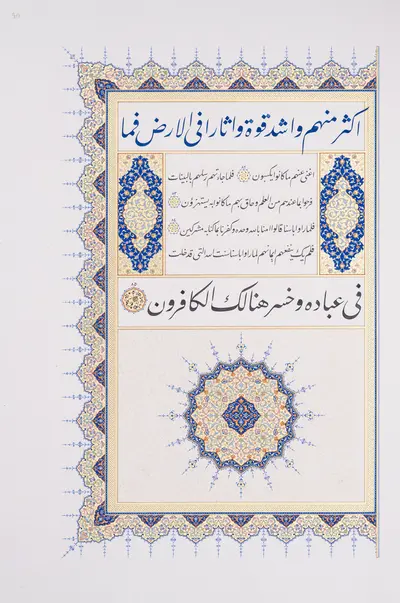 اكثر منهم واشد قوة واثارا فى الارض فما
اغنى عنهم ما كانوا يكسبون فلما جاءتهم رسلهم بالبينات
فرحوا بما عندهم من العلم وحاق بهم ما كانوا به يستهزؤن
فلما راوا باسنا قالوا امنا بالله وحده وكفرنا بما كنا به مشركين
فلم يك ينفعهم ايمانهم لما راوا باسنا سنت الله التى قد خلت
فى عباده وخسر هنالك الكافرون